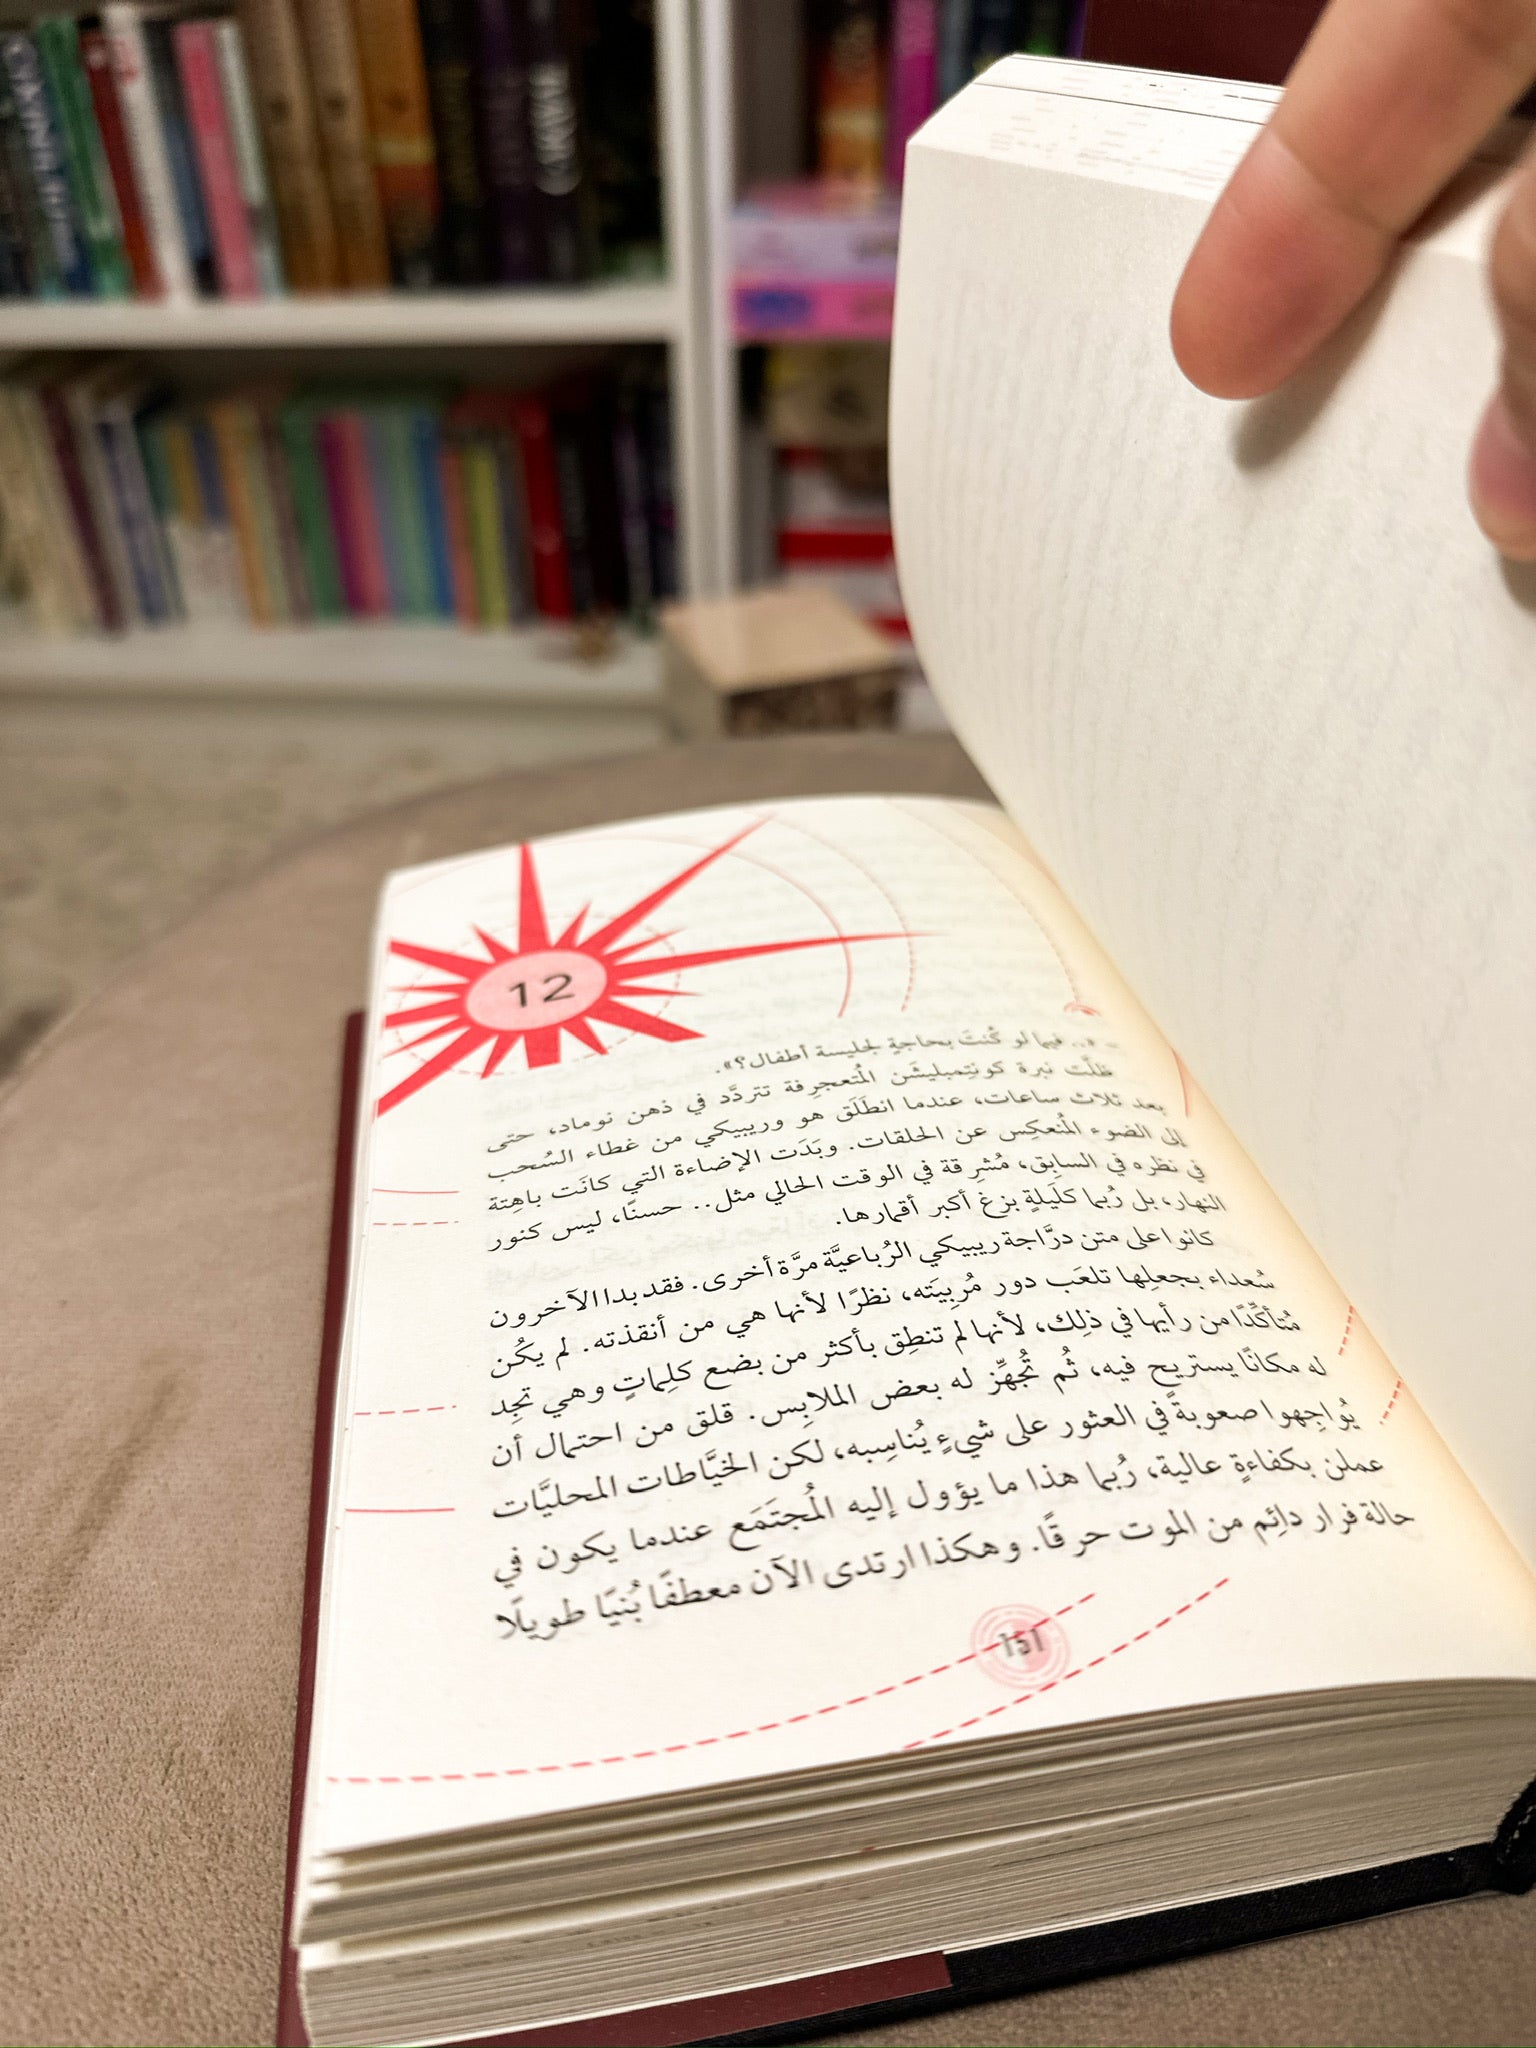 12
– «.. فيما لو كُنتَ بحاجةٍ لجليسة أطفال؟».
ظلَّت نبرة كونتِمبليشَن المُتعجرِفة تتردَّد في ذهن نوماد، حتى
بعد ثلاث ساعات، عندما انطَلَق هو وريبيكي من غطاء السُحب
إلى الضوء المُنعكِس عن الحلقات. وبَدَت الإضاءة التي كانَت باهِتة
في نظره في السابِق، مُشرِقة في الوقت الحالي مثل.. حسنًا، ليس كنور
النهار، بل رُبما كلَيلةٍ بزغ أكبر أقمارها.
كانوا على متن درَّاجة ريبيكي الرُباعيَّة مرَّة أخرى. فقد بدا الآخرون
سُعداء بجعلِها تلعَب دور مُربِيَته، نظرًا لأنها هي من أنقذته. لم يكُن
مُتأكِّدًا من رأيها في ذلِك، لأنها لم تنطِق بأكثر من بضع كلِماتٍ وهي تجِد
له مكانًا يستريح فيه، ثُم تُجهِّز له بعض الملابِس. قلق من احتمال أن
يُواجِهوا صعوبةً في العثور على شيءٍ يُناسِبه، لكن الخيَّاطات المحليَّات
عملن بكفاءةٍ عالية، رُبما هذا ما يؤول إليه المُجتَمَع عندما يكون في
حالة فرار دائِم من الموت حرقًا. وهكذا ارتدى الآن معطفًا بُنيًا طويلًا
151